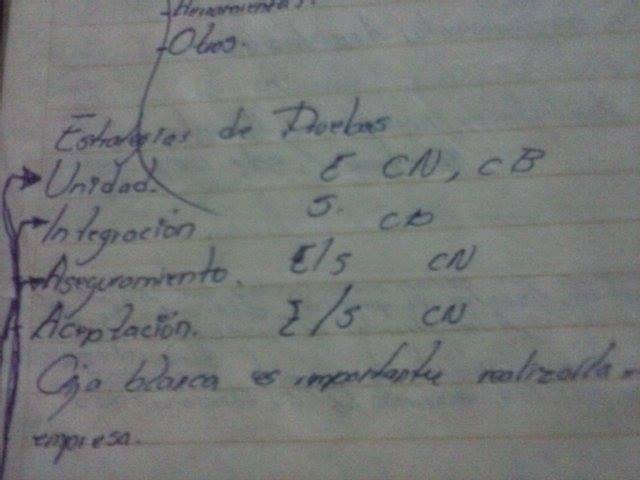 - Herramientas.
- Otros.
Estrategias de Pruebas
Unidad. E CN, CB
Integración S. CB
Aseguramiento. E/S CN
Aceptación. E/S CN
Caja blanca es importante realizarla
empresa.